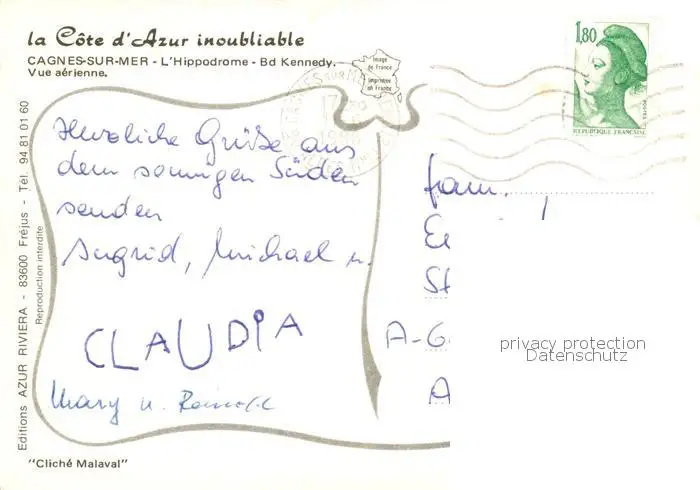 la Côte d'Azur inoubliable
CAGNES-SUR-MER - L'Hippodrome - Bd Kennedy.
Vue aérienne.
Image
de France
Imprimée
en France
1,80
POSTES
REPUBLIQUE FRANÇAISE
CAGNES SUR MER
17
Herzliche Grüße aus
dem sonnigen Süden
senden
Ingrid, Michael u.
CLAUDIA
Mary u.
Fam.
A-G
A
privacy protection
Datenschutz
Editions AZUR RIVIERA - 83600 Fréjus - Tél. 94 81 01 60
Reproduction interdite
"Cliché Malaval"